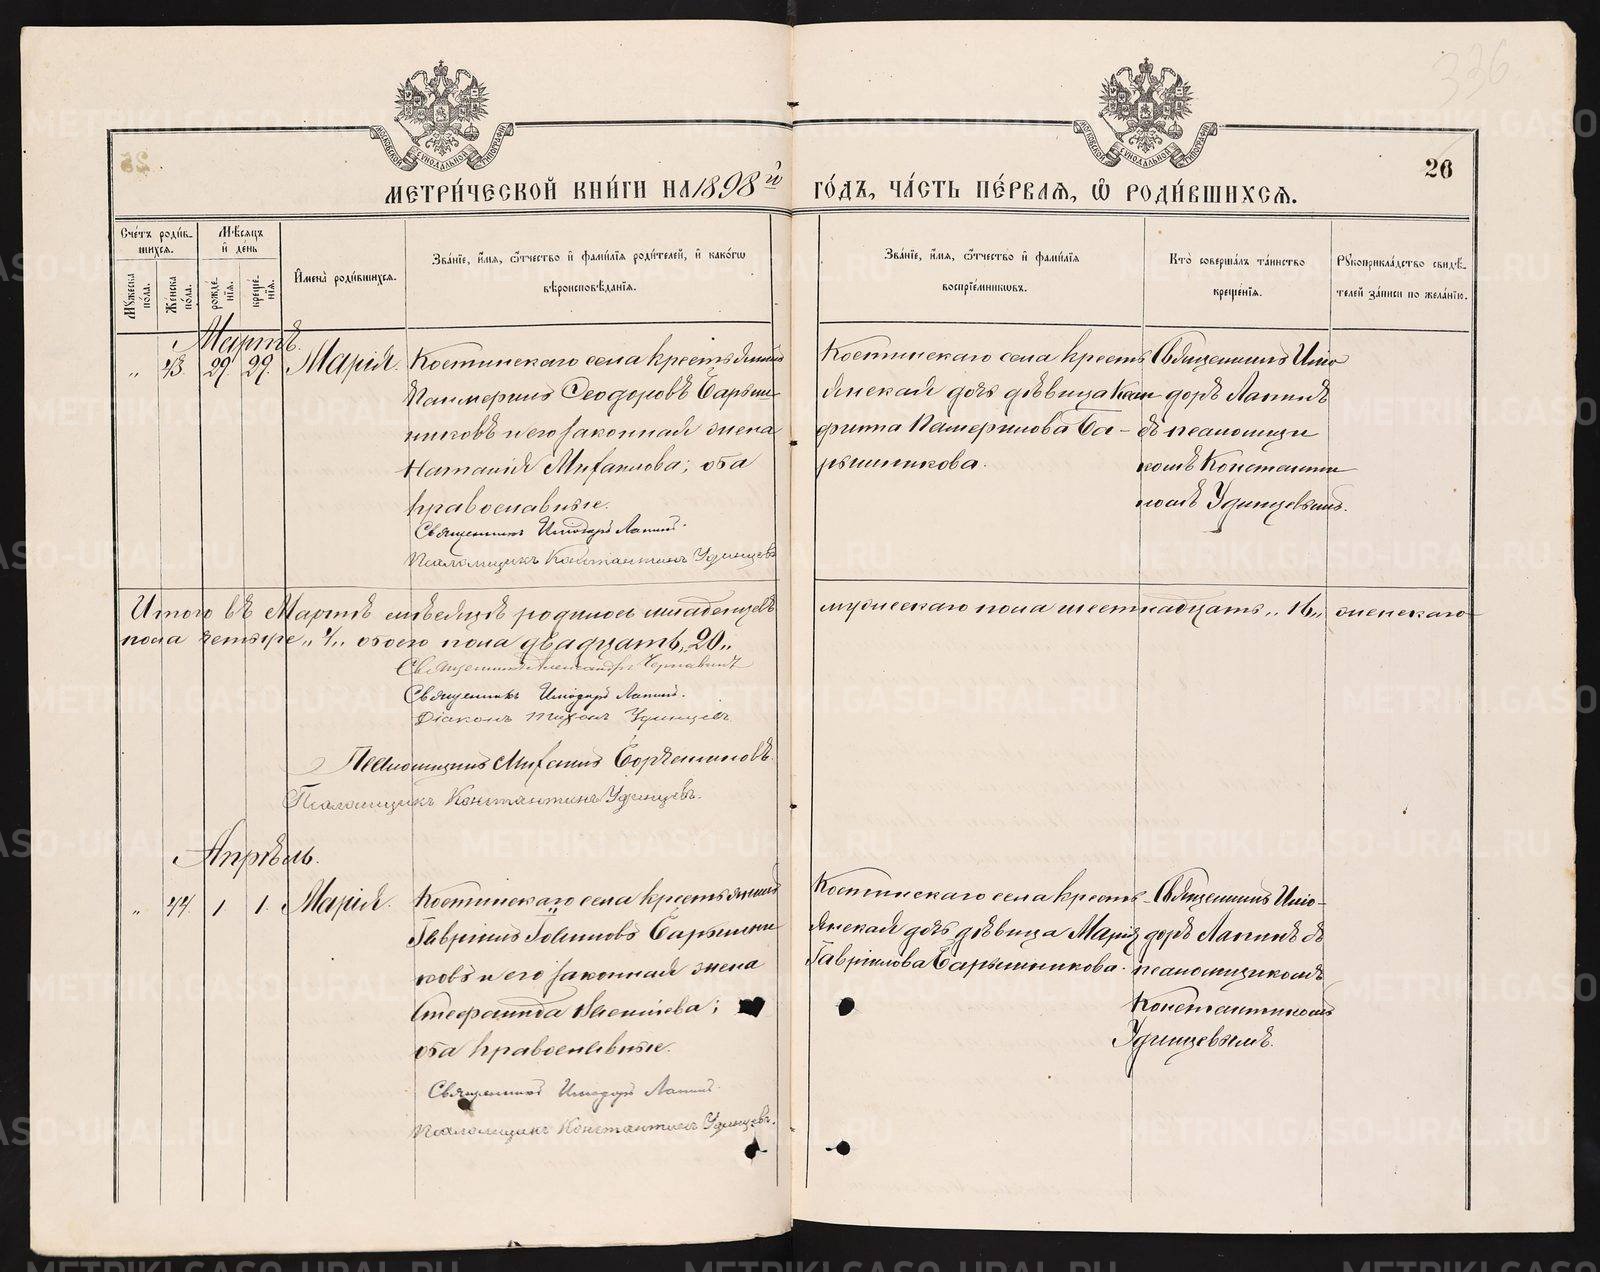 336
26
МЕТРИ́ЧЕСКОЙ КНИ́ГИ НА 1898й ГО́ДЪ, ЧА́СТЬ ПЕ́РВАЯ, Ѡ РОДИ́ВШИХСЯ.
Сче́тъ роди́вшихся.
Мѣ́сяцъ и де́нь
Му́жеска по́ла.
Же́нска по́ла.
рожде́нія.
креще́нія.
Имена̀ роди́вшихся.
Зва́ніе, и́мя, ѻ́тчество и фами́лія роди́телей, и како́гѡ вѣроисповѣ́данія.
Зва́ніе, и́мя, ѻ́тчество и фами́лія воспріе́мниковъ.
Кто̀ соверша́лъ та́инство креще́нія.
Рукоприкла́дство свидѣ́телей за́писи по жела́нію.
Мартъ.
„ 43. 29. 29. Марія.
Костинскаго села крестьянинъ
Ѳеодоровъ Барыш-
никовъ и его законная жена
Наталія Михаилова; оба
православные.
Священникъ Исидоръ Лапинъ.
Псаломщикъ Константинъ Удинцевъ
Костинскаго села кресть-
янская дочь дѣвица
Ба-
рышникова.
Священникъ Иси-
доръ Лапинъ
съ псаломщи
комъ Константи
номъ Удинцевымъ.
Итого въ Мартѣ мѣсяцѣ родилось младенцевъ мужескаго пола шестнадцать „16„ женскаго
пола четыре „4„ обоего пола двадцать „20„
Священникъ Александръ
Священникъ Исидоръ Лапинъ.
Діаконъ Тихонъ Удинцевъ
Псаломщикъ Михаилъ
Псаломщикъ Константинъ Удинцевъ.
Апрѣль.
„ 44. 1. 1. Марія.
Костинскаго села крестьянинъ
Гавріилъ Барышни
ковъ и его законная жена
оба православные.
Священникъ Исидоръ Лапинъ.
Псаломщикъ Константинъ Удинцевъ.
Костинскаго села кресть-
янская дочь дѣвица Марія
Гавріилова Барышникова.
Священникъ Иси-
доръ Лапинъ съ
псаломщикомъ
Константиномъ
Удинцевымъ.
METRIKI.GASO-URAL.RU